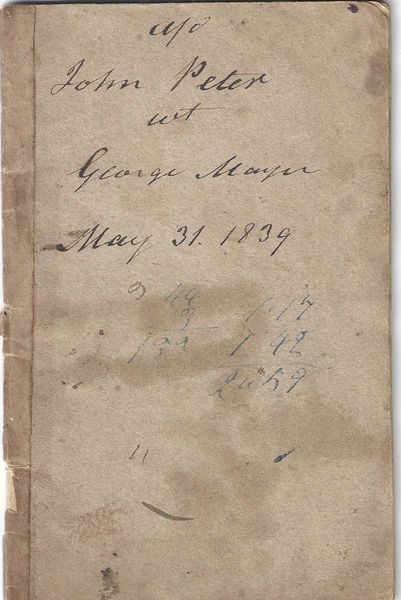 a/c
John Peter
wt
George Mayer
May 31. 1839
1.17
1 42
2.59